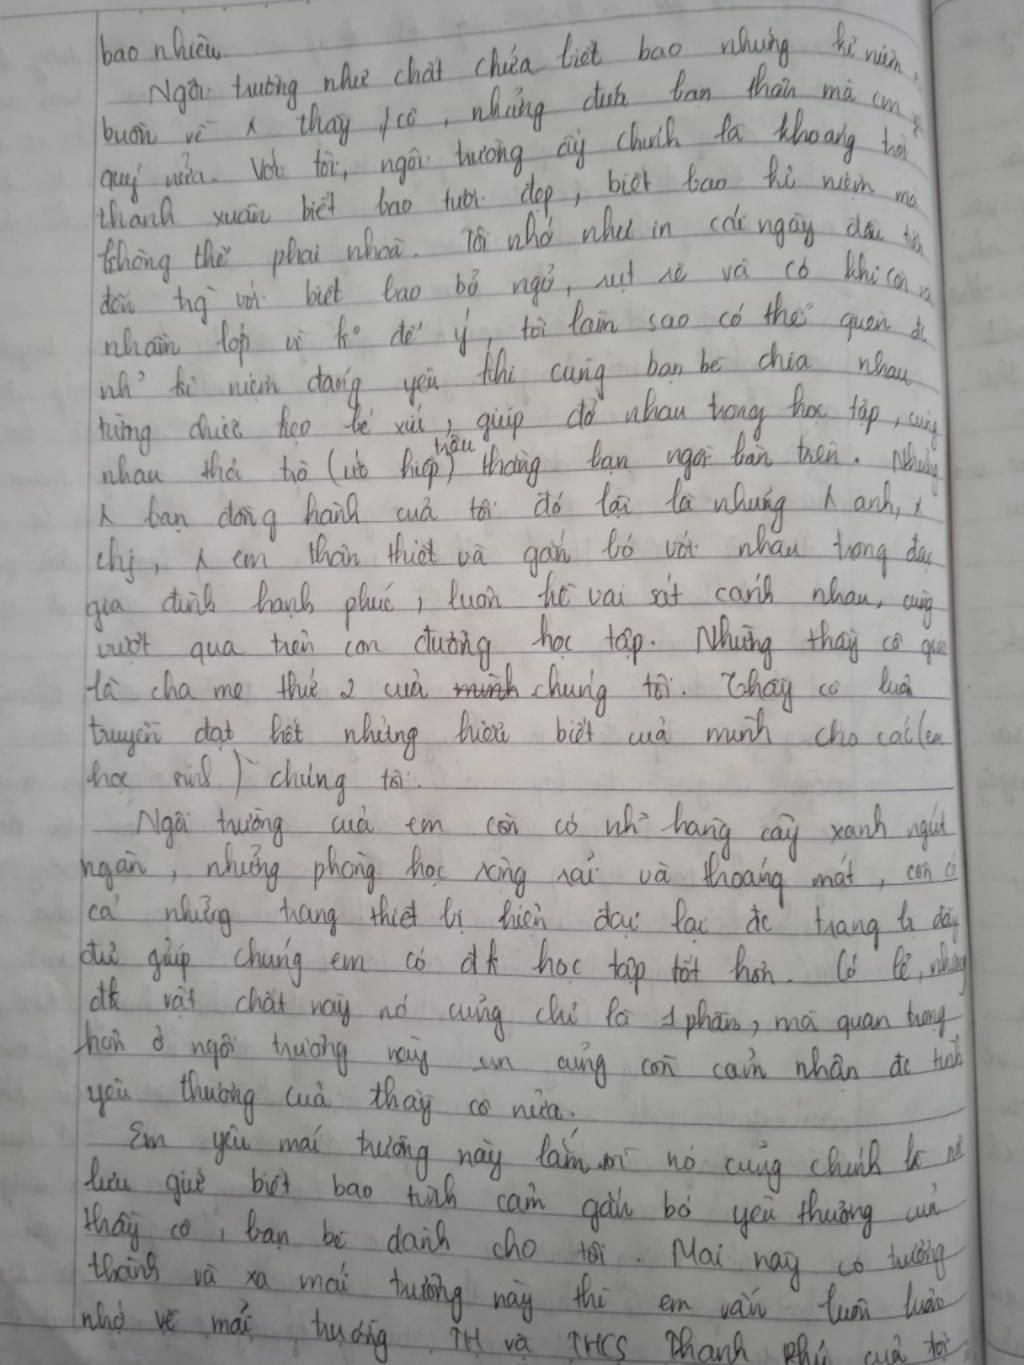 bao nhiêu.
Ngôi trường như chất chứa biết bao những kỉ niệm,
buồn về thầy cô, những bạn thân mà em
quý nữa. Với tôi, ngôi trường ấy chính là khoảng trời
thanh xuân biết bao tươi đẹp, biết bao kỉ niệm mà
không thể phai nhoà. Tôi nhớ như in cái ngày đầu tiên
đến trg với biết bao bỡ ngỡ, rụt rè và có khi còn
nhầm lớp vì k° để ý, tôi làm sao có thể quên đc
nh~ kỉ niệm đáng yêu khi cùng bạn bè chia nhau
từng chiếc kẹo bé xíu, giúp đỡ nhau trong học tập, cùng
nhau thả trò (ức hiếp) trêu thằng bạn ngồi bàn trên. Những
bạn đồng hành của tôi đó lại là những anh,
chị, em thân thiết và gắn bó với nhau trong đại
gia đình hạnh phúc, luôn kề vai sát cánh nhau, cùng
vượt qua trên con đường học tập. Những thầy cô
là cha mẹ thứ 2 của mình chúng tôi. Thầy cô luôn
truyền đạt hết những hiểu biết của mình cho các (em
học sinh) chúng tôi.
Ngôi trường của em còn có nh~ hàng cây xanh ngút
ngàn, những phòng học rộng rãi và thoáng mát, còn có
cả những trang thiết bị hiện đại lại đc trang bị đầy
đủ giúp chúng em có đk học tập tốt hơn. Có lẽ, những
đk vật chất này nó cũng chỉ là 1 phần, mà quan trọng
hơn ở ngôi trường này em cũng còn cảm nhận đc tình
yêu thương của thầy cô nữa.
Em yêu mái trường này lắm vì nó cũng chính là nơi
lưu giữ biết bao tình cảm gắn bó yêu thương của
thầy cô, bạn bè dành cho tôi. Mai này có trưởng
thành và xa mái trường này thì em vẫn luôn luôn
nhớ về mái trường TH và THCS Thanh Phú của tôi